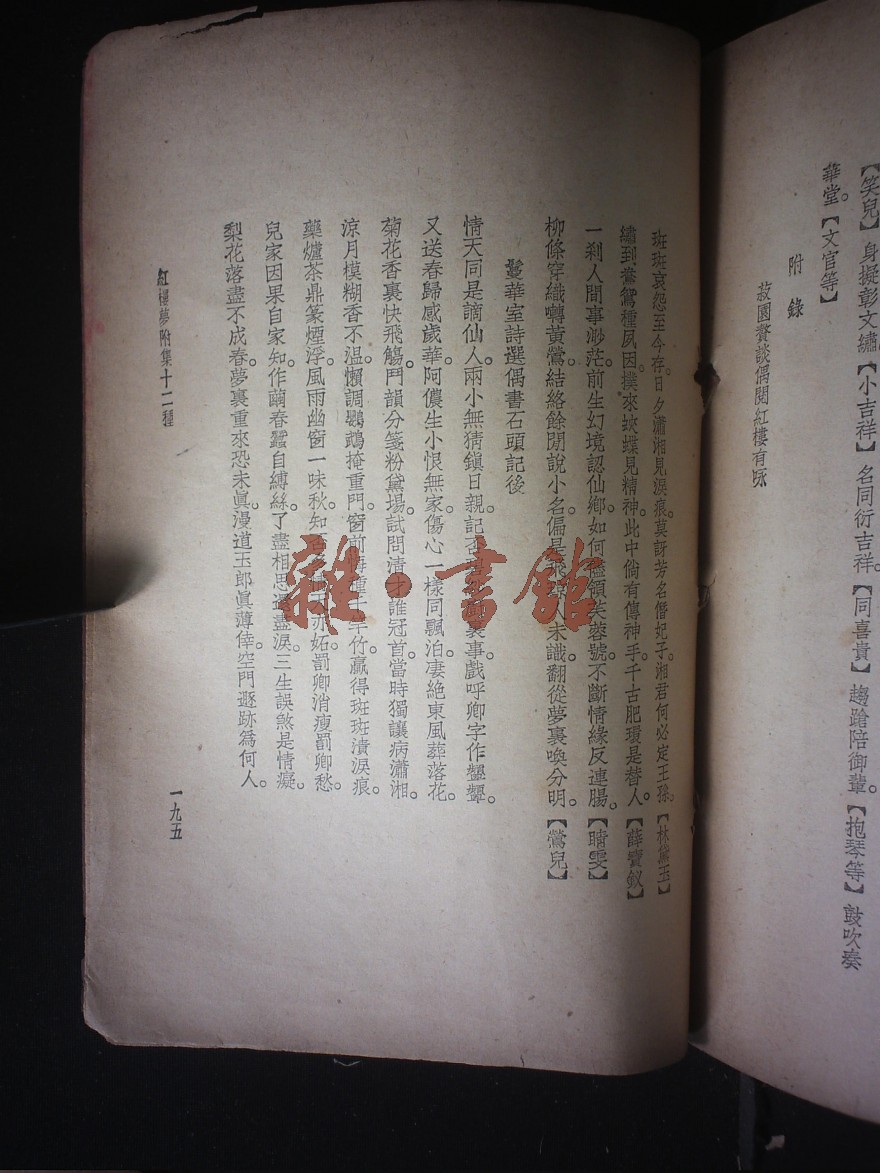 【笑兒】身擬彰文繡。【小吉祥】名同衍吉祥。【同喜貴】趨蹌陪御輦。【抱琴等】鼓吹奏
華堂。【文官等】
附錄
菽園贅談偶閱紅樓有咏
斑斑哀怨至今存。日夕瀟湘見淚痕。莫訝芳名僭妃子。湘君何必定王孫。【林黛玉】
繡到鴛鴦種夙因。撲來蛺蝶見精神。此中倘有傳神手。千古肥環是替人。【薛寶釵】
一剎人間事渺茫。前生幻境認仙鄉。如何儘領芙蓉號。不斷情緣反連腸。【晴雯】
柳條穿織囀黃鶯。結絡餘閒說小名。偏是未識。翻從夢裏喚分明。【鶯兒】
鬘華室詩選偶書石頭記後
情天同是謫仙人。兩小無猜鎭日親。記否裏事。戲呼卿字作顰顰。
又送春歸感歲華。阿儂生小恨無家。傷心一樣同飄泊。淒絕東風葬落花。
菊花香裏快飛觴。鬥韻分箋粉黛場。試問清才誰冠首。當時獨讓病瀟湘。
涼月模糊香不溫。懶調鸚鵡掩重門。窗前竹。贏得斑斑漬淚痕。
藥爐茶鼎篆煙浮。風雨幽窗一味秋。知亦妬。罰卿消瘦罰卿愁。
兒家因果自家知。作繭春蠶自縛絲。了盡相思還盡淚。三生誤煞是情癡。
梨花落盡不成春。夢裏重來恐未眞。漫道玉郎眞薄倖。空門遯跡爲何人。
紅樓夢附集十二種
一九五
雜·書館